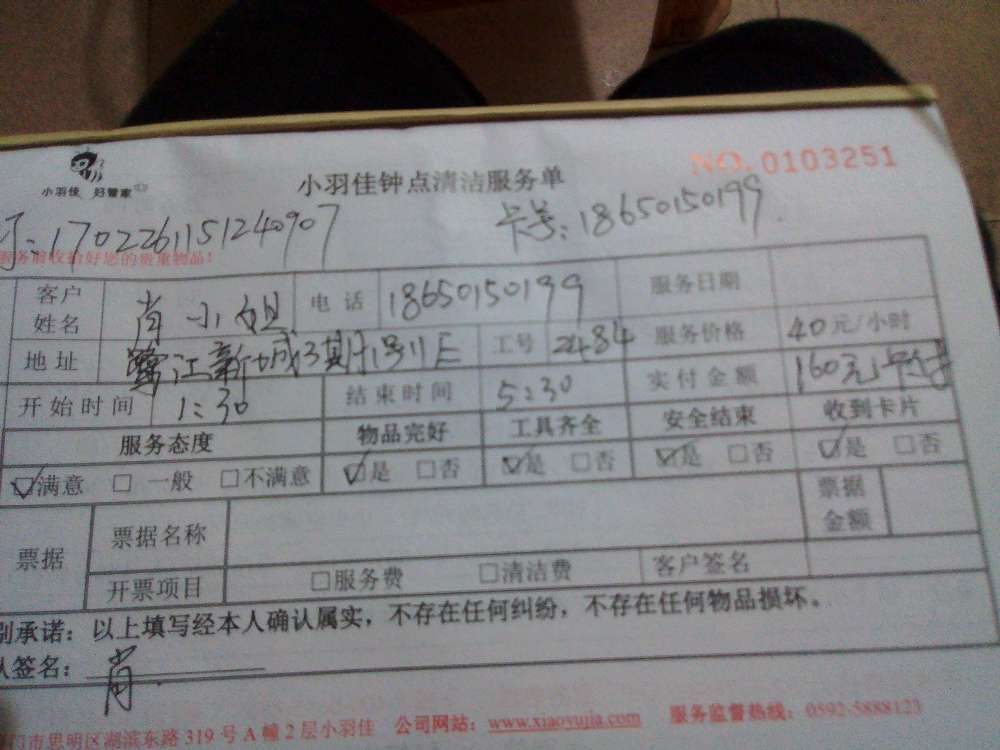 小羽佳 好管家
小羽佳钟点清洁服务单
NO. 0103251
1702261151240907
卡号:18650150199
服务前收拾好您的贵重物品!
客户姓名 肖小姐 电话 18650150199 服务日期
地址 鹭江新城3期 工号 2484 服务价格 40元/小时
开始时间 1:30 结束时间 5:30 实付金额 160元卡付
服务态度 物品完好 工具齐全 安全结束 收到卡片
☑满意 □一般 □不满意 ☑是 □否 ☑是 □否 ☑是 □否 ☑是 □否
票据 票据名称 票据金额
开票项目 □服务费 □清洁费 客户签名
别承诺:以上填写经本人确认属实,不存在任何纠纷,不存在任何物品损坏。
人签名:肖
门市思明区湖滨东路319号A幢2层小羽佳 公司网站:www.xiaoyujia.com 服务监督热线:0592-5888123